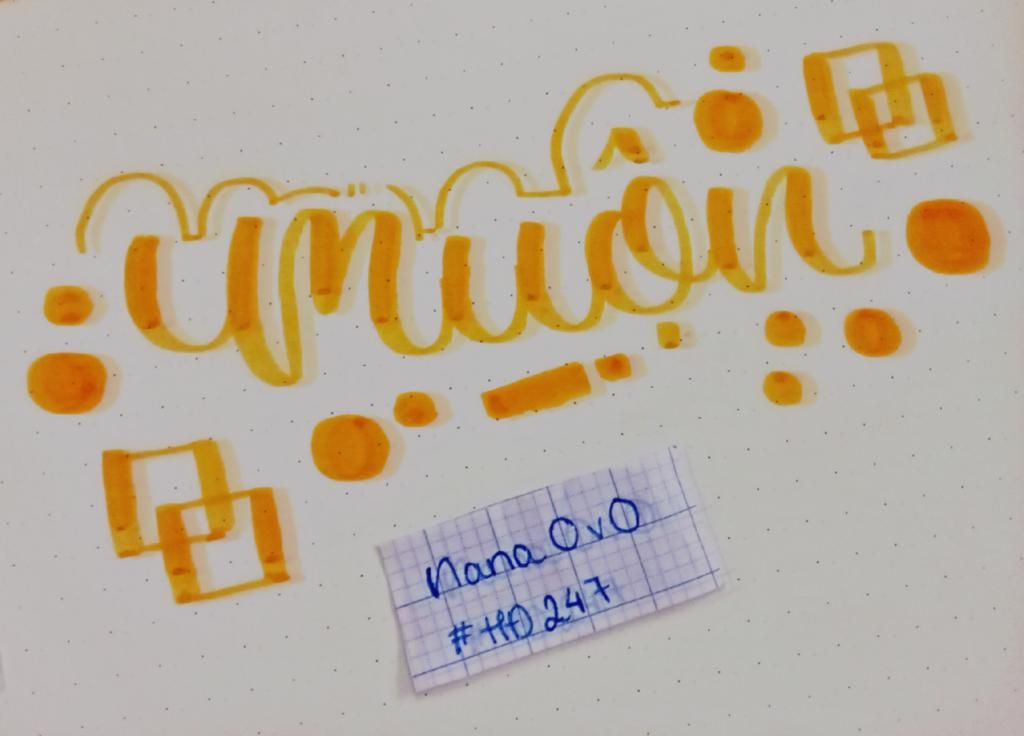 muộn
Nana OvO
#HD247